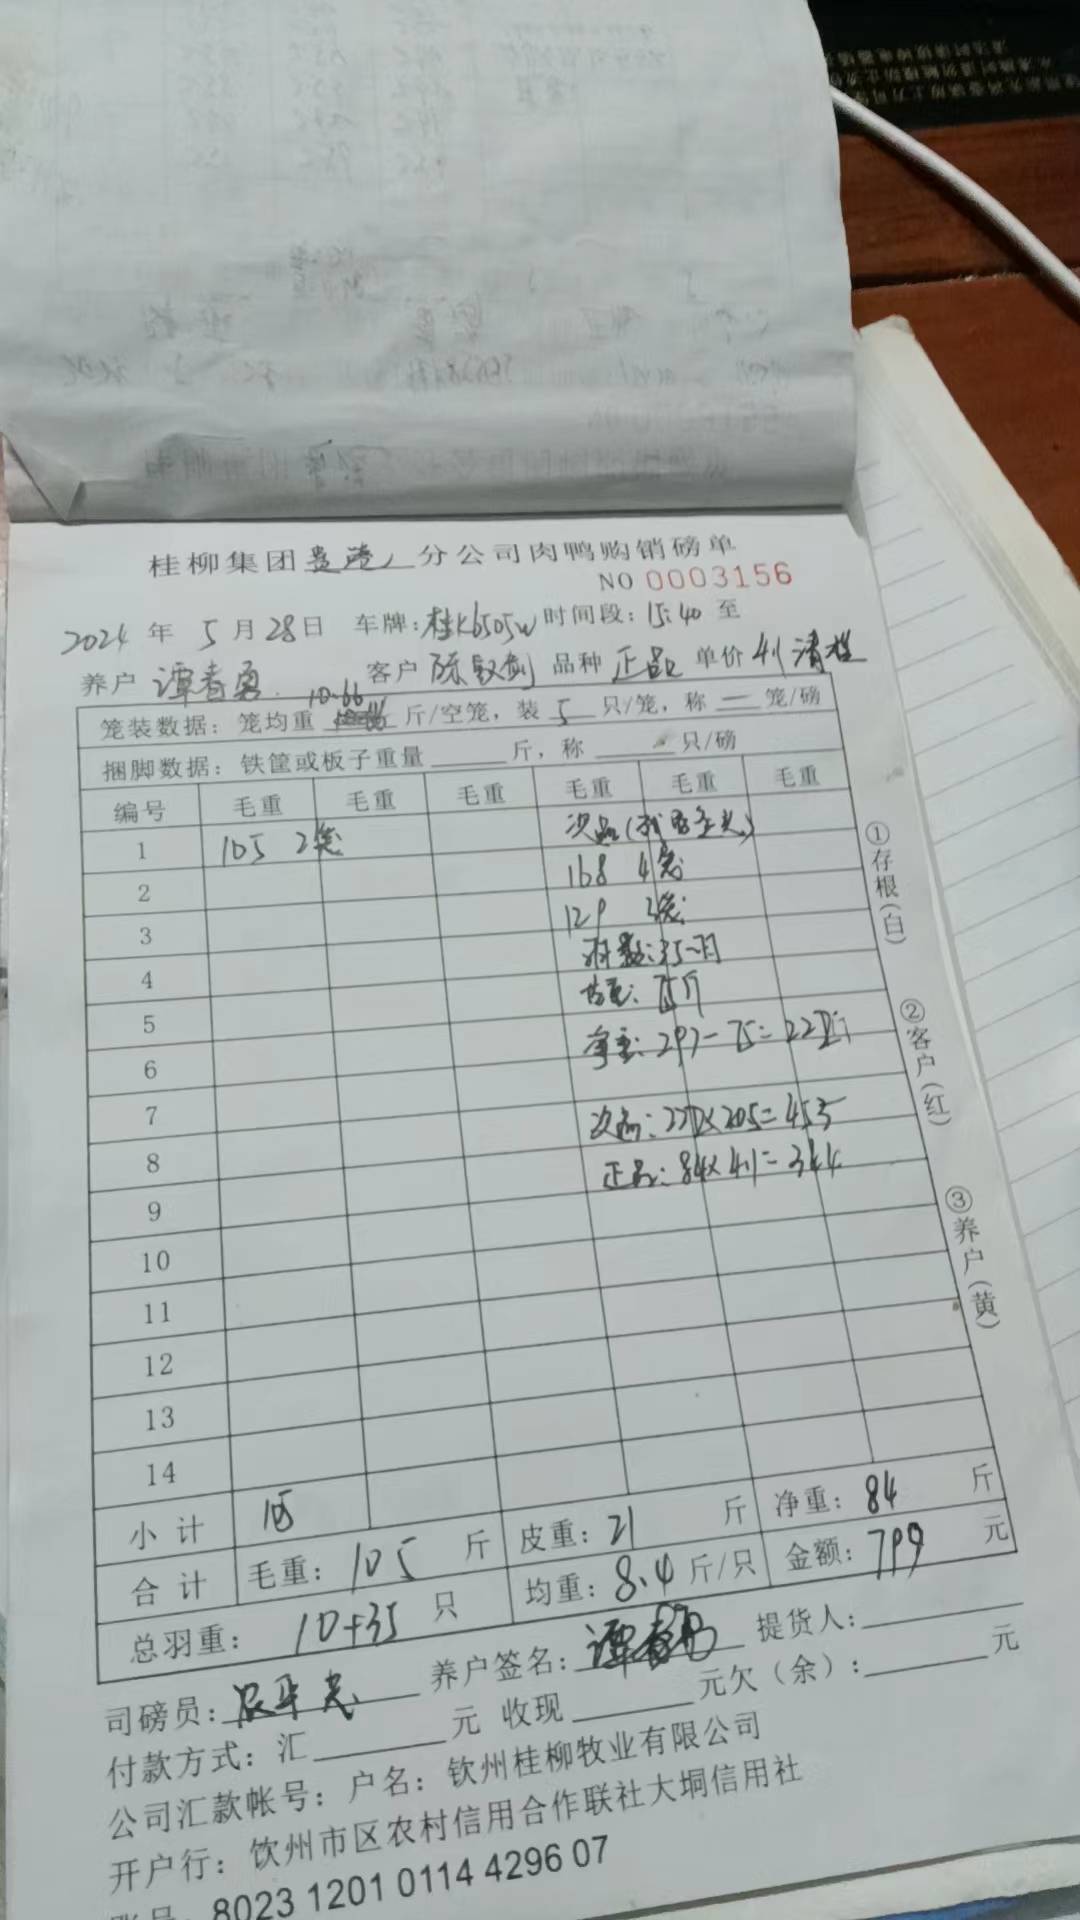 桂柳集团贵港分公司肉鸭购销磅单
NO 0003156
2024 年 5 月 28 日 车牌:桂K6505W 时间段:15:40 至
养户 谭春勇 客户 陈钗剑 品种 正品 单价 4.1
10.66
笼装数据:笼均重 斤/空笼,装 5 只/笼,称 一 笼/磅
捆脚数据:铁筐或板子重量 斤,称 只/磅
编号 毛重 毛重 毛重 毛重 毛重 毛重
1 105 2笼 次品
2 168 4笼
3 129 3笼
4 羽数:35羽
5 皮重:75斤
6 净重:297-75=222斤
7
8 次品:222×2.05=455
正品:84×4.1=344
9
10
11
12
13
14
小计 105
合计 毛重:105 斤 皮重:21 斤 净重:84 斤
总羽重:10+35 只 均重:8.4 斤/只 金额:799 元
司磅员: 养户签名:谭春勇 提货人:
付款方式:汇 元 收现 元欠(余): 元
公司汇款帐号:户名:钦州桂柳牧业有限公司
开户行:钦州市区农村信用合作联社大垌信用社
账号:8023 1201 0114 4296 07
①存根(白)
②客户(红)
③养户(黄)